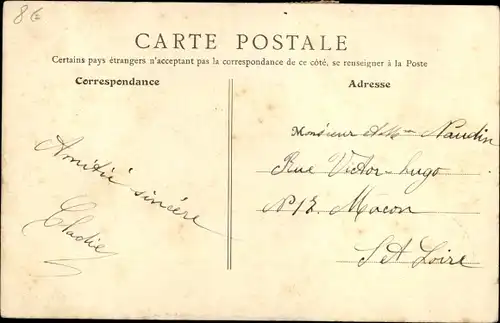 86
CARTE POSTALE
Certains pays étrangers n'acceptant pas la correspondance de ce côté, se renseigner à la Poste
Correspondance
Adresse
Monsieur et Mme Naudin
Rue Victor-hugo
N° 12. Macon
S et Loire
Amitié sincère